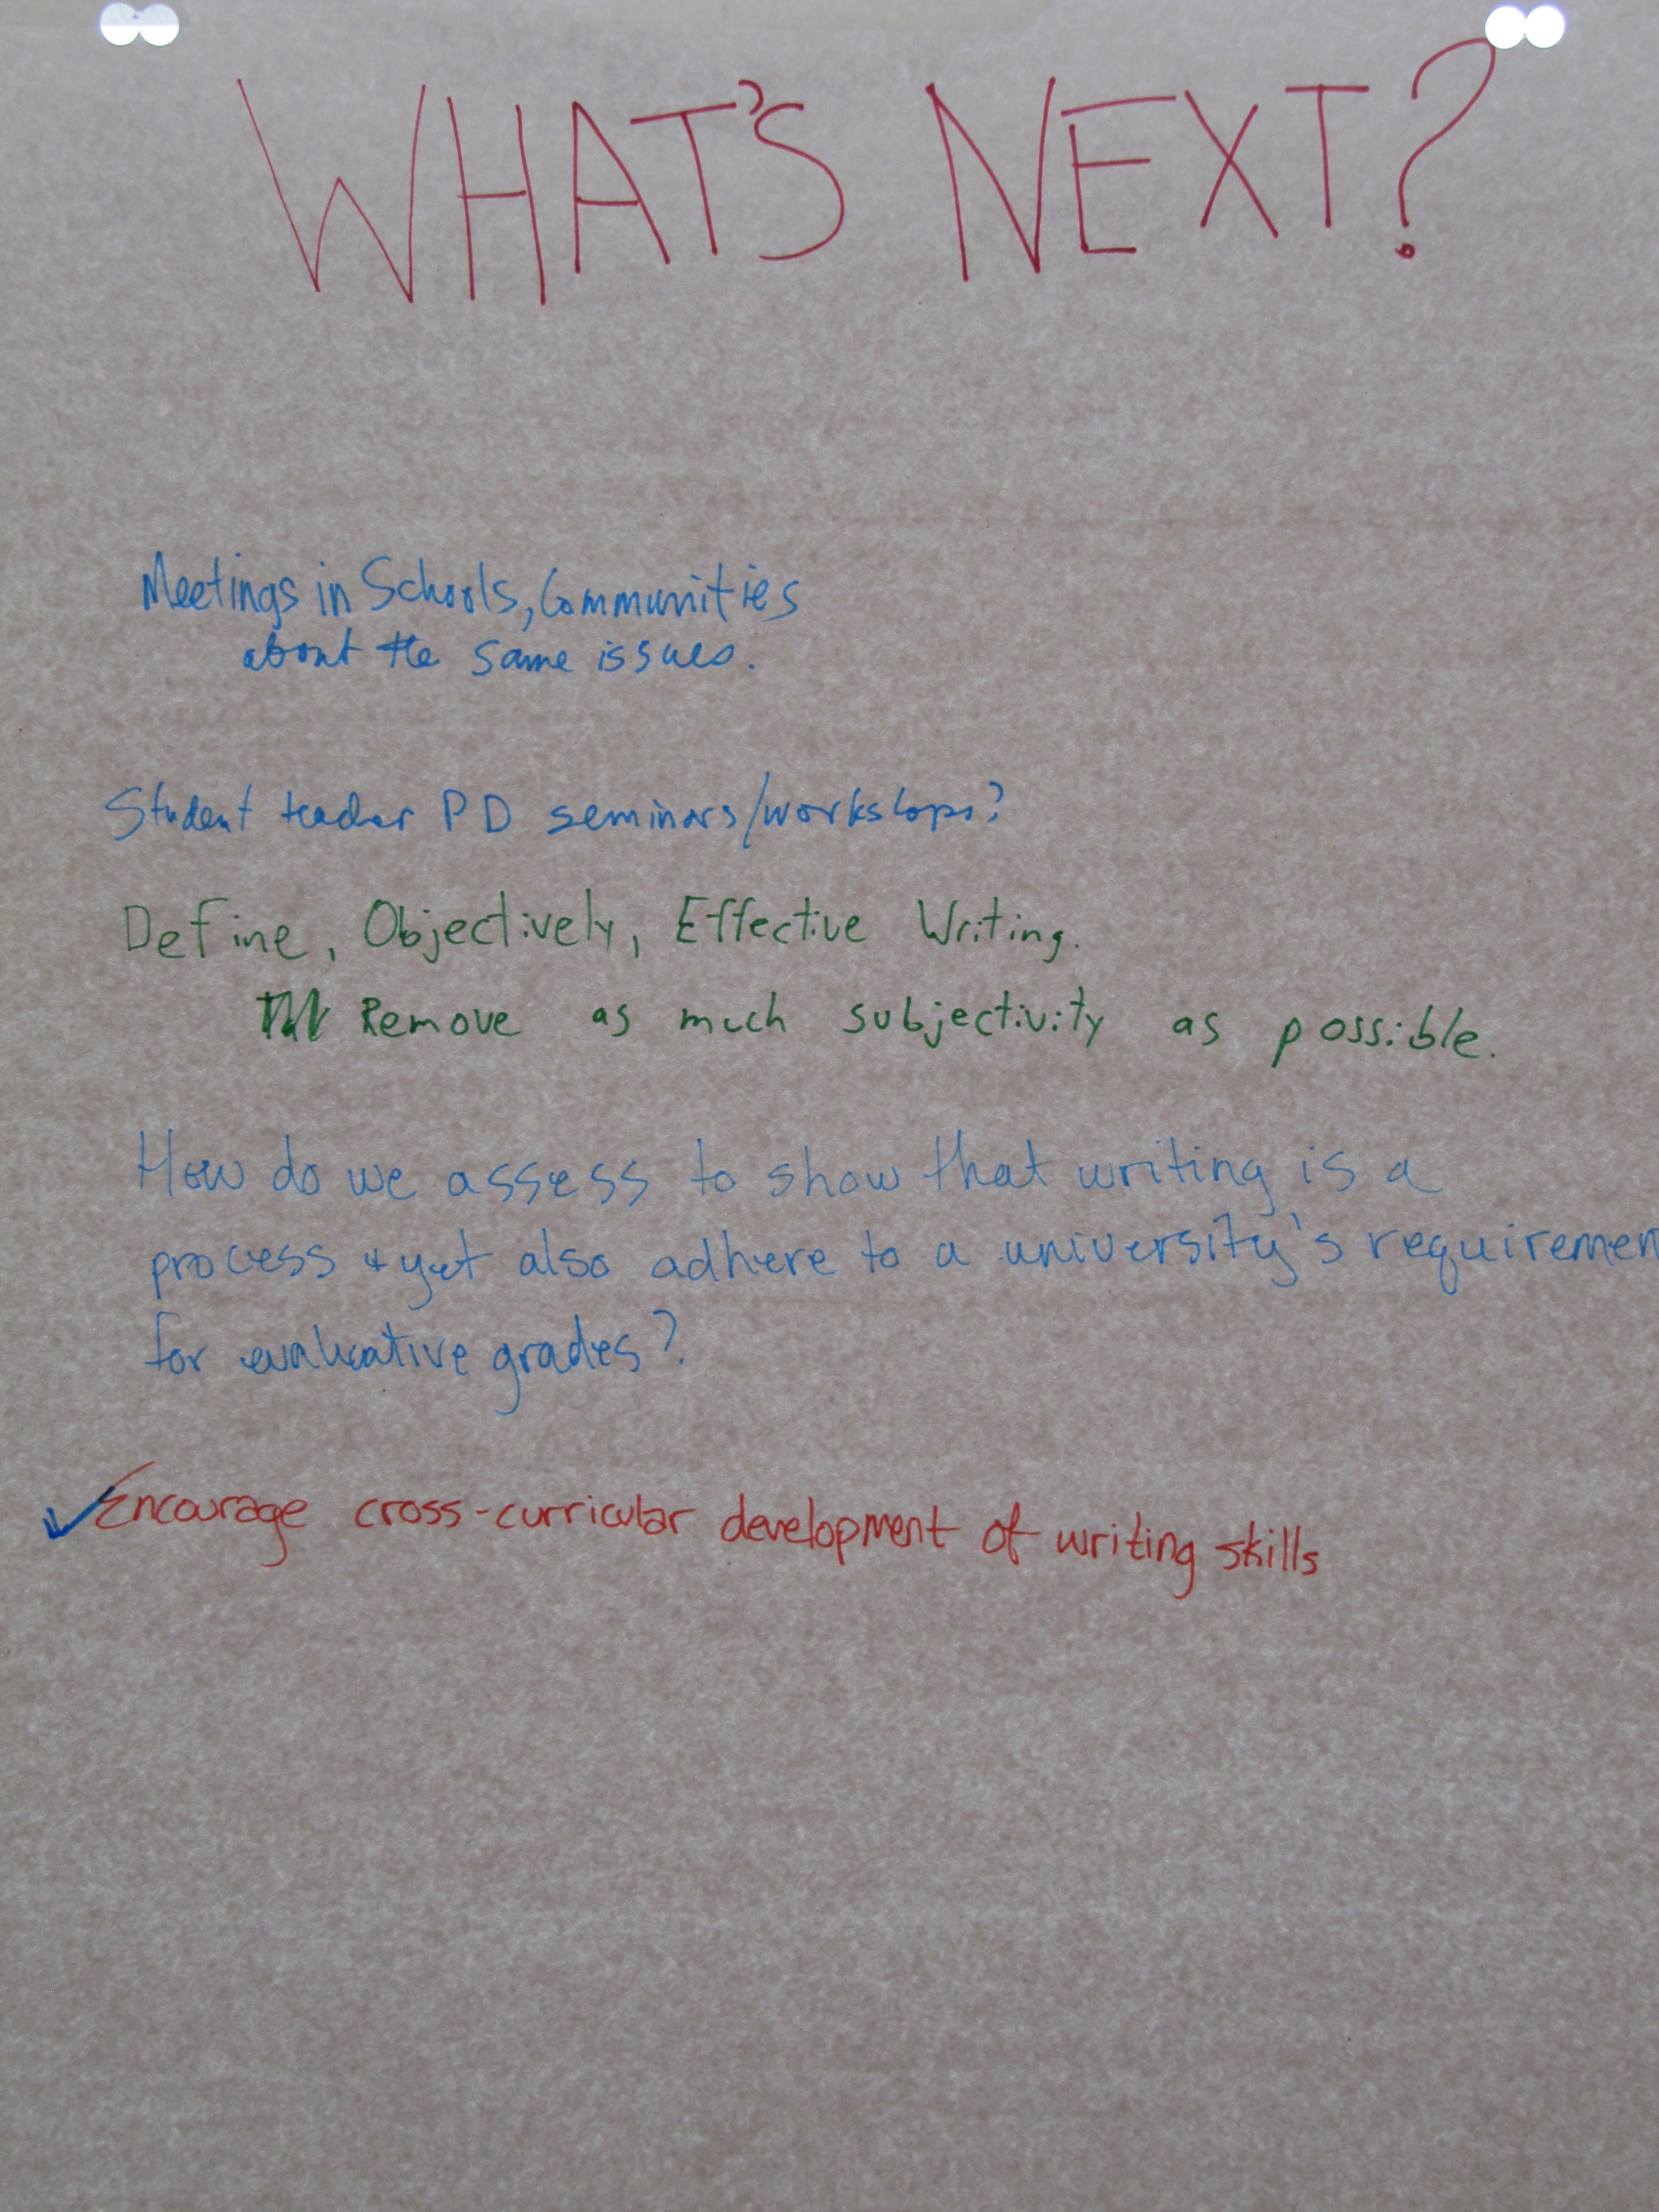 WHAT'S NEXT?
Meetings in Schools, Communities
about the same issues.
Student teacher PD seminars/workshops?
Define, Objectively, Effective Writing.
Remove as much subjectivity as possible.
How do we assess to show that writing is a
process & yet also adhere to a university's requiremen
for evaluative grades?
✓ Encourage cross-curricular development of writing skills